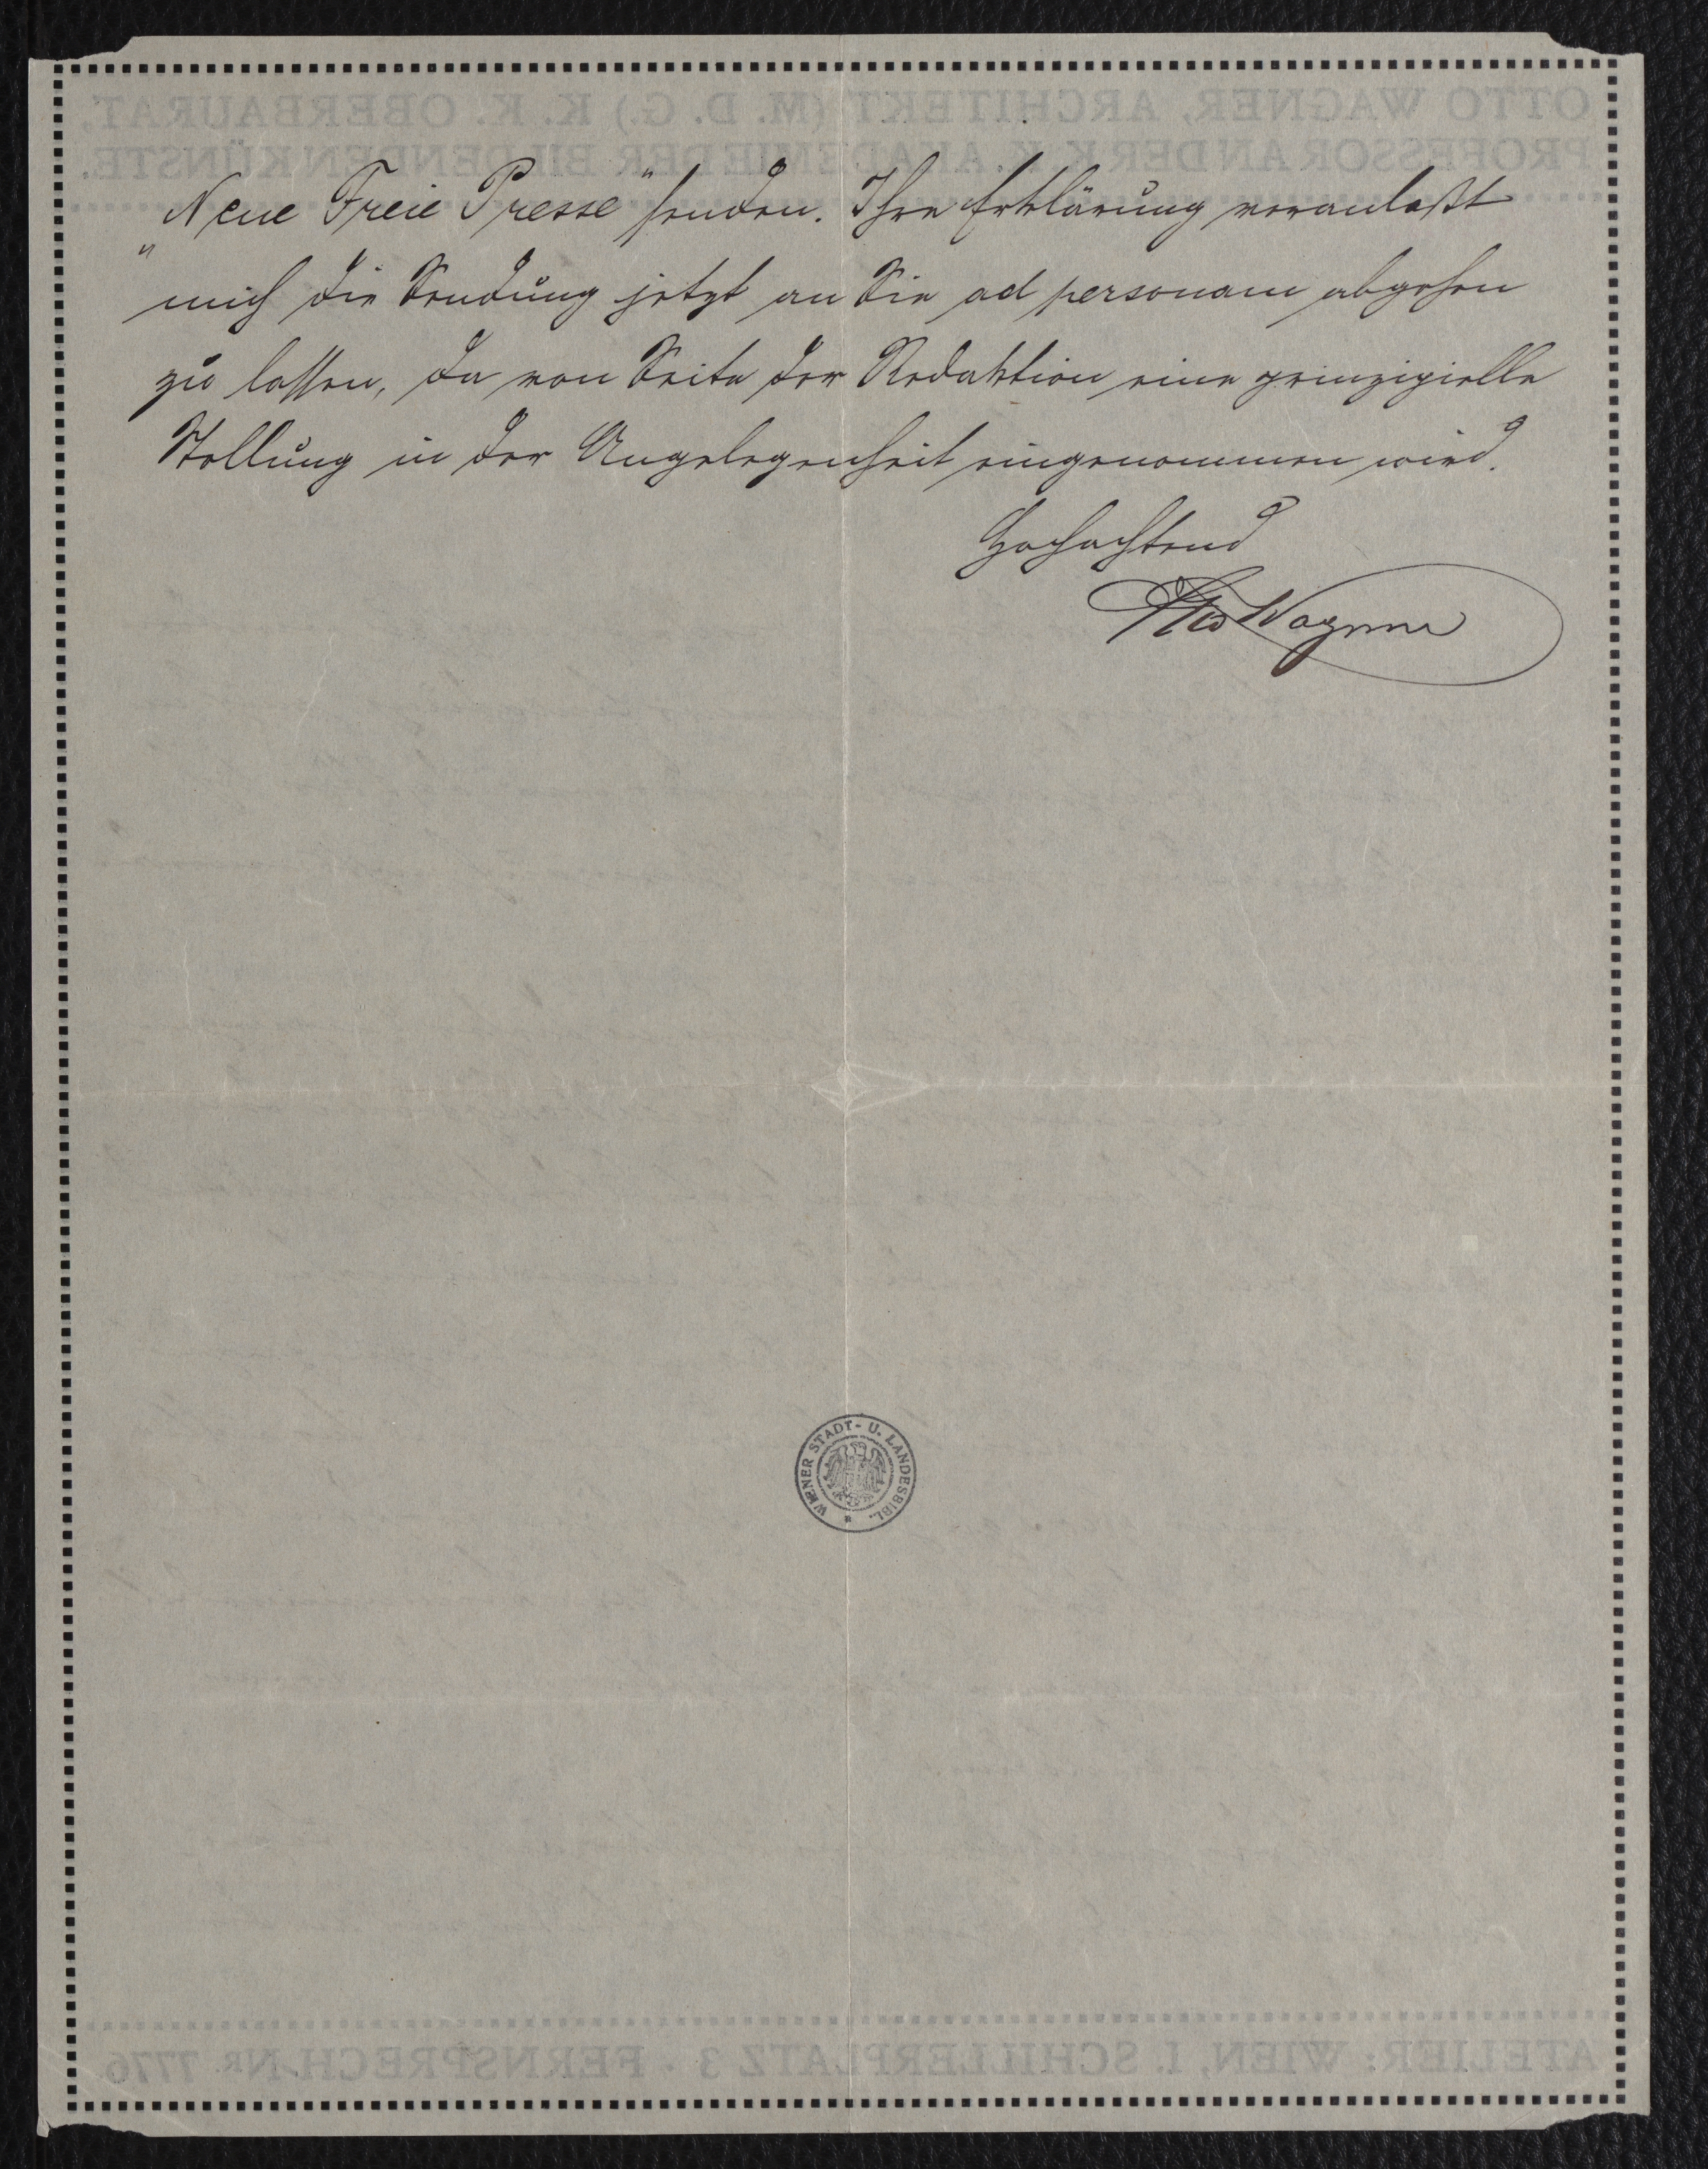 „Neue Freie Presse“ senden. Ihre Erklärung veranlaßt
mich die Sendung jetzt an Sie ad personam abgehen
zu lassen, da von Seite der Redaktion eine prinzipielle
Stellung in der Angelegenheit eingenommen wird.
Hochachtend
Otto Wagner
WIENER STADT- U. LANDESBIBL.
OTTO WAGNER, ARCHITEKT (M. D. G.) K. K. OBERBAURAT,
PROFESSOR AN DER K. K. AKADEMIE DER BILDENDEN KÜNSTE.
ATELIER: WIEN, I. SCHILLERPLATZ 3 - FERNSPRECH-NR. 7776